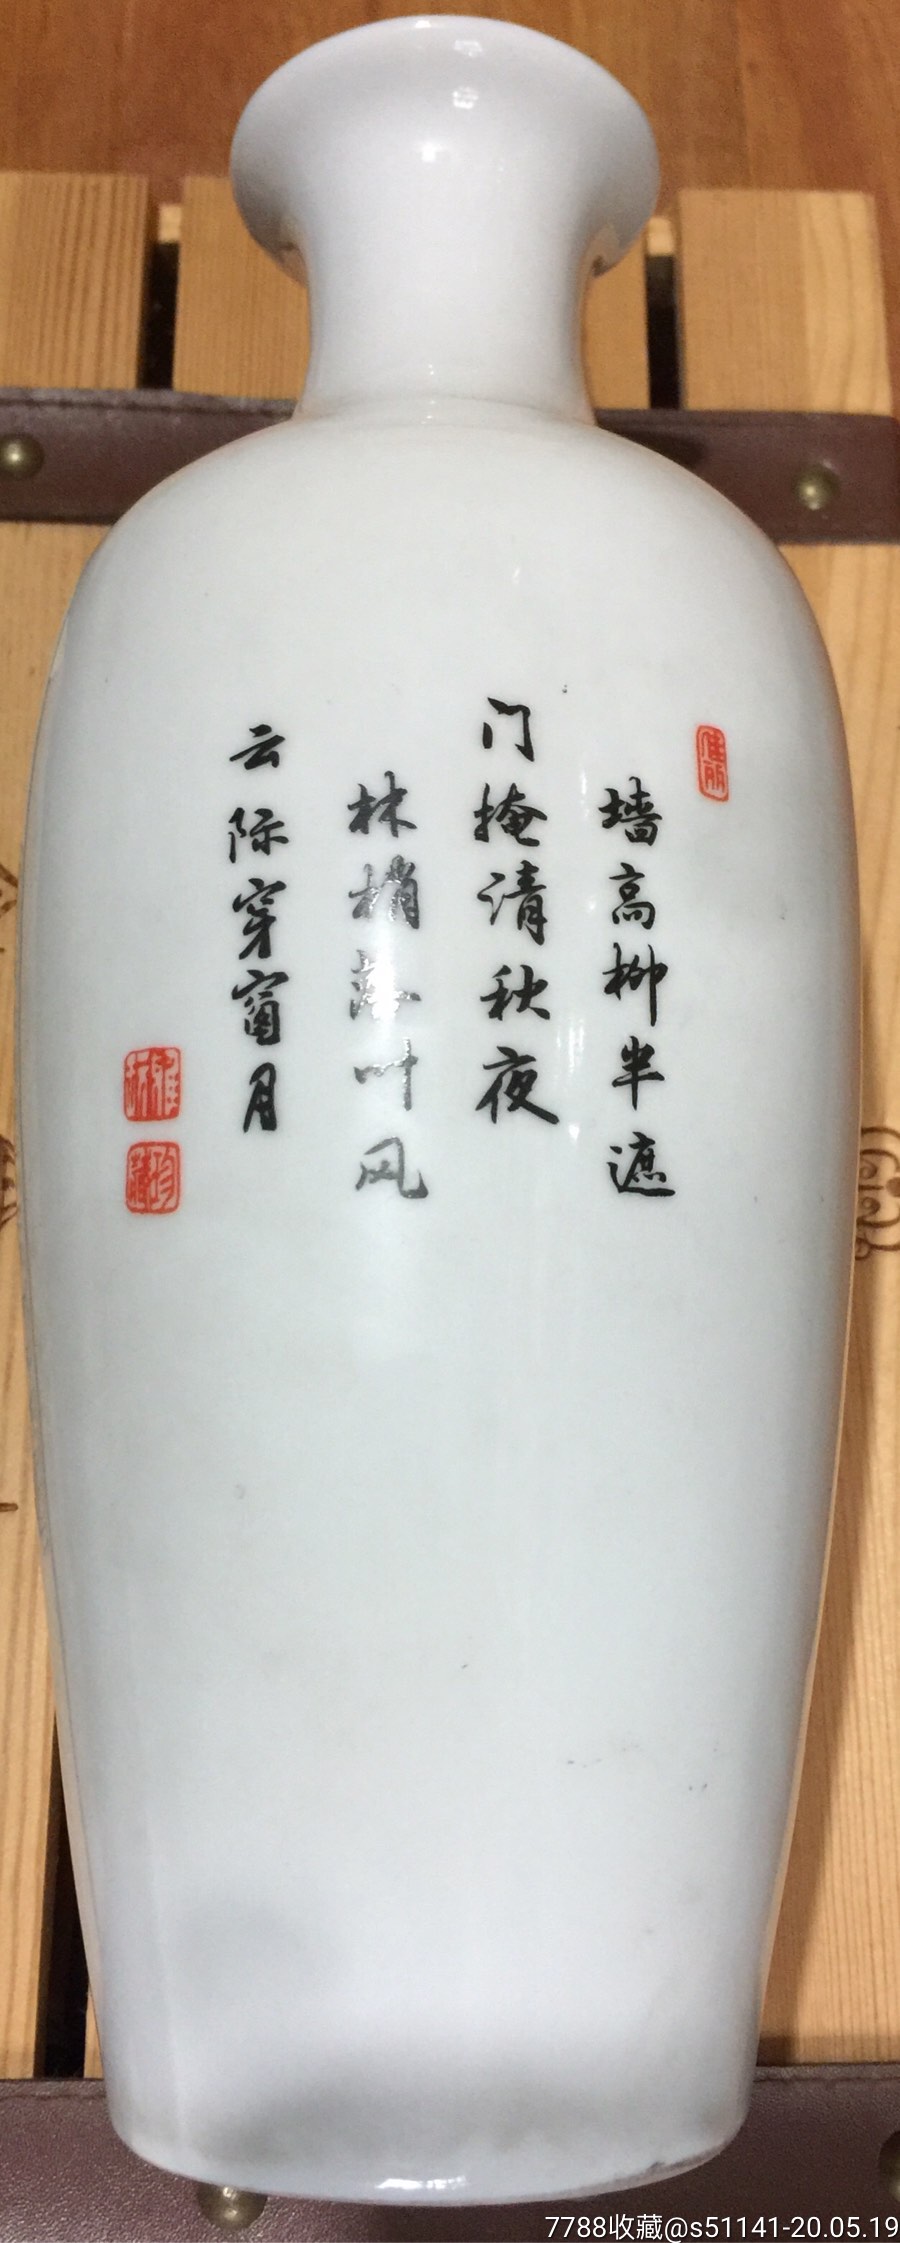 佳丽
墙高柳半遮
门掩清秋夜
林梢落叶风
云际穿窗月
珍藏
7788收藏@s51141-20.05.19